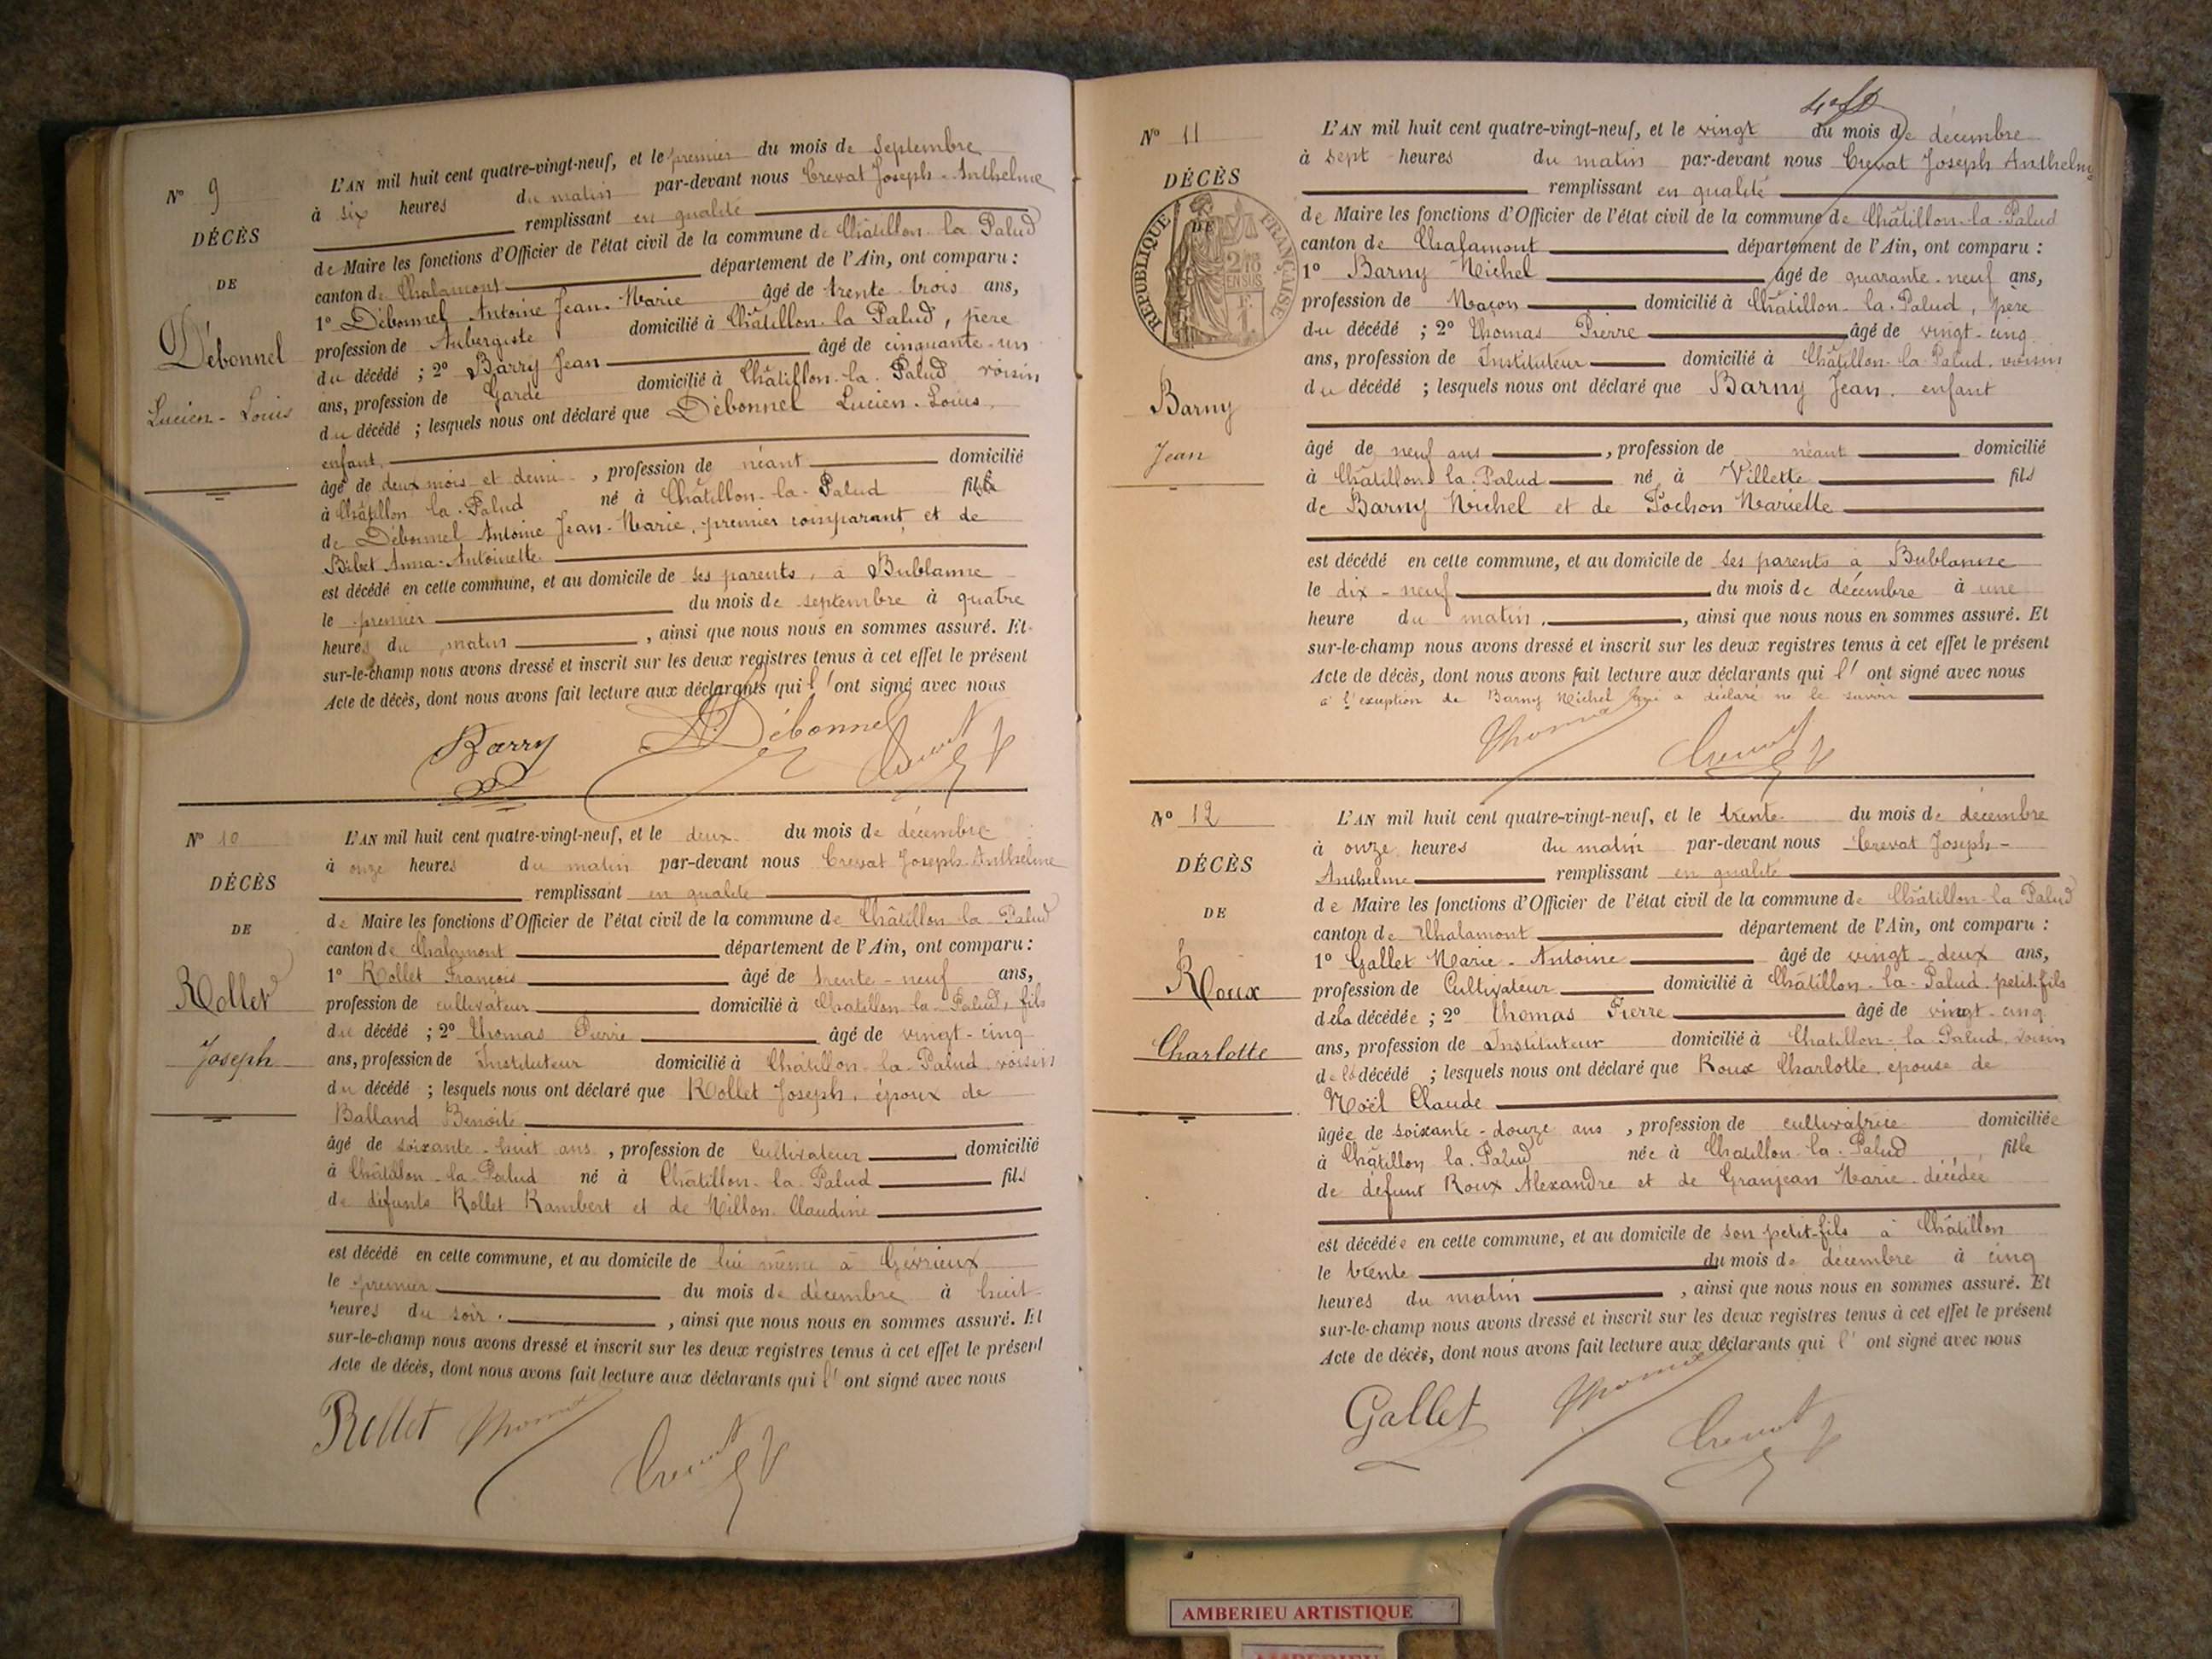 N° 9
DÉCÈS
DE
Débonnel
Lucien-Louis
L'AN mil huit cent quatre-vingt-neuf, et le premier du mois de Septembre
à six heures du matin par-devant nous Crevat Joseph-Anthelme
remplissant en qualité
de Maire les fonctions d'Officier de l'état civil de la commune de Châtillon-la-Palud
canton de Chalamont département de l'Ain, ont comparu :
1° Débonnel Antoine Jean-Marie âgé de trente trois ans,
profession de Aubergiste domicilié à Châtillon-la Palud, père
du décédé ; 2° Barry Jean âgé de cinquante-un
ans, profession de Garde domicilié à Châtillon-la-Palud voisin
du décédé ; lesquels nous ont déclaré que Débonnel Lucien-Louis,
enfant,
âgé de deux mois et demi , profession de néant domicilié
à Châtillon la-Palud né à Châtillon-la-Palud fils
de Débonnel Antoine Jean-Marie, premier comparant, et de
Bibet Anna-Antoinette
est décédé en cette commune, et au domicile de ses parents, à Bublanne
le premier du mois de septembre à quatre
heures du matin , ainsi que nous nous en sommes assuré. Et
sur-le-champ nous avons dressé et inscrit sur les deux registres tenus à cet effet le présent
Acte de décès, dont nous avons fait lecture aux déclarants qui l'ont signé avec nous
Barry Débonnel Crevat
N° 10
DÉCÈS
DE
Rollet
Joseph
L'AN mil huit cent quatre-vingt-neuf, et le deux du mois de décembre
à onze heures du matin par-devant nous Crevat Joseph-Anthelme
remplissant en qualité
de Maire les fonctions d'Officier de l'état civil de la commune de Châtillon-la-Palud
canton de Chalamont département de l'Ain, ont comparu :
1° Rollet François âgé de trente-neuf ans,
profession de cultivateur domicilié à Châtillon-la-Palud, fils
du décédé ; 2° Thomas Pierre âgé de vingt-cinq
ans, profession de Instituteur domicilié à Châtillon-la-Palud voisin
du décédé ; lesquels nous ont déclaré que Rollet Joseph, époux de
Balland Benoite
âgé de soixante-huit ans , profession de Cultivateur domicilié
à Châtillon-la-Palud né à Châtillon-la-Palud fils
de défunts Rollet Rambert et de Millon Claudine
est décédé en cette commune, et au domicile de lui même à Gévrieux
le premier du mois de décembre à huit
heures du soir. , ainsi que nous nous en sommes assuré. Et
sur-le-champ nous avons dressé et inscrit sur les deux registres tenus à cet effet le présent
Acte de décès, dont nous avons fait lecture aux déclarants qui l'ont signé avec nous
Rollet Thomas Crevat
N° 11
DÉCÈS
DE
RÉPUBLIQUE FRANÇAISE
2/10 EN SUS
Barny
Jean
L'AN mil huit cent quatre-vingt-neuf, et le vingt du mois de décembre
à sept heures du matin par-devant nous Crevat Joseph Anthelme
remplissant en qualité
de Maire les fonctions d'Officier de l'état civil de la commune de Châtillon-la-Palud
canton de Chalamont département de l'Ain, ont comparu :
1° Barny Michel âgé de quarante-neuf ans,
profession de Maçon domicilié à Châtillon-la-Palud, père
du décédé ; 2° Thomas Pierre âgé de vingt-cinq
ans, profession de Instituteur domicilié à Châtillon-la-Palud, voisin
du décédé ; lesquels nous ont déclaré que Barny Jean, enfant
âgé de neuf ans , profession de néant domicilié
à Châtillon la-Palud né à Villette fils
de Barny Michel et de Pochon Mariette
est décédé en cette commune, et au domicile de ses parents à Bublanne
le dix-neuf du mois de décembre à une
heure du matin, , ainsi que nous nous en sommes assuré. Et
sur-le-champ nous avons dressé et inscrit sur les deux registres tenus à cet effet le présent
Acte de décès, dont nous avons fait lecture aux déclarants qui l'ont signé avec nous
à l'exception de Barny Michel qui a déclaré ne le savoir
Thomas Crevat
N° 12
DÉCÈS
DE
Roux
Charlotte
L'AN mil huit cent quatre-vingt-neuf, et le trente du mois de décembre
à onze heures du matin par-devant nous Crevat Joseph-
Anthelme remplissant en qualité
de Maire les fonctions d'Officier de l'état civil de la commune de Châtillon-la-Palud
canton de Chalamont département de l'Ain, ont comparu :
1° Gallet Marie-Antoine âgé de vingt-deux ans,
profession de Cultivateur domicilié à Châtillon-la-Palud, petit-fils
de la décédée ; 2° Thomas Pierre âgé de vingt-cinq
ans, profession de Instituteur domicilié à Chatillon-la-Palud, voisin
de la décédé ; lesquels nous ont déclaré que Roux Charlotte, épouse de
Noël Claude
âgée de soixante-douze ans , profession de cultivatrice domiciliée
à Châtillon la-Palud née à Chatillon-la-Palud fille
de défunt Roux Alexandre et de Granjean Marie décédée
est décédée en cette commune, et au domicile de son petit-fils à Châtillon
le trente du mois de décembre à cinq
heures du matin , ainsi que nous nous en sommes assuré. Et
sur-le-champ nous avons dressé et inscrit sur les deux registres tenus à cet effet le présent
Acte de décès, dont nous avons fait lecture aux déclarants qui l'ont signé avec nous
Gallet Thomas Crevat
AMBERIEU ARTISTIQUE